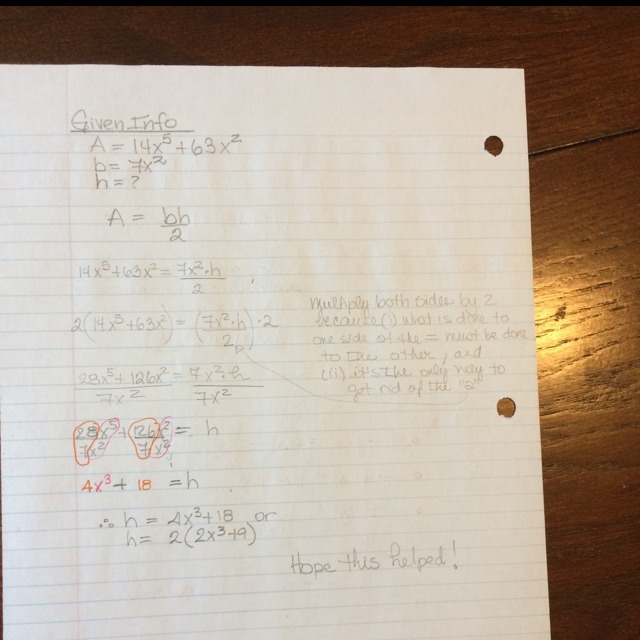 Given Info
A = 14x⁵ + 63x²
b = 7x²
h = ?
A = bh/2
14x⁵ + 63x² = 7x²·h/2
2(14x⁵ + 63x²) = (7x²·h/2)·2
multiply both sides by 2
because (i) what is done to
one side of the = must be done
to the other, and
(ii) it's the only way to
get rid of the "2"
28x⁵ + 126x²/7x² = 7x²·h/7x²
28x⁵/7x² + 126x²/7x² = h
4x³ + 18 = h
∴ h = 4x³ + 18 or
h = 2(2x³ + 9)
Hope this helped!